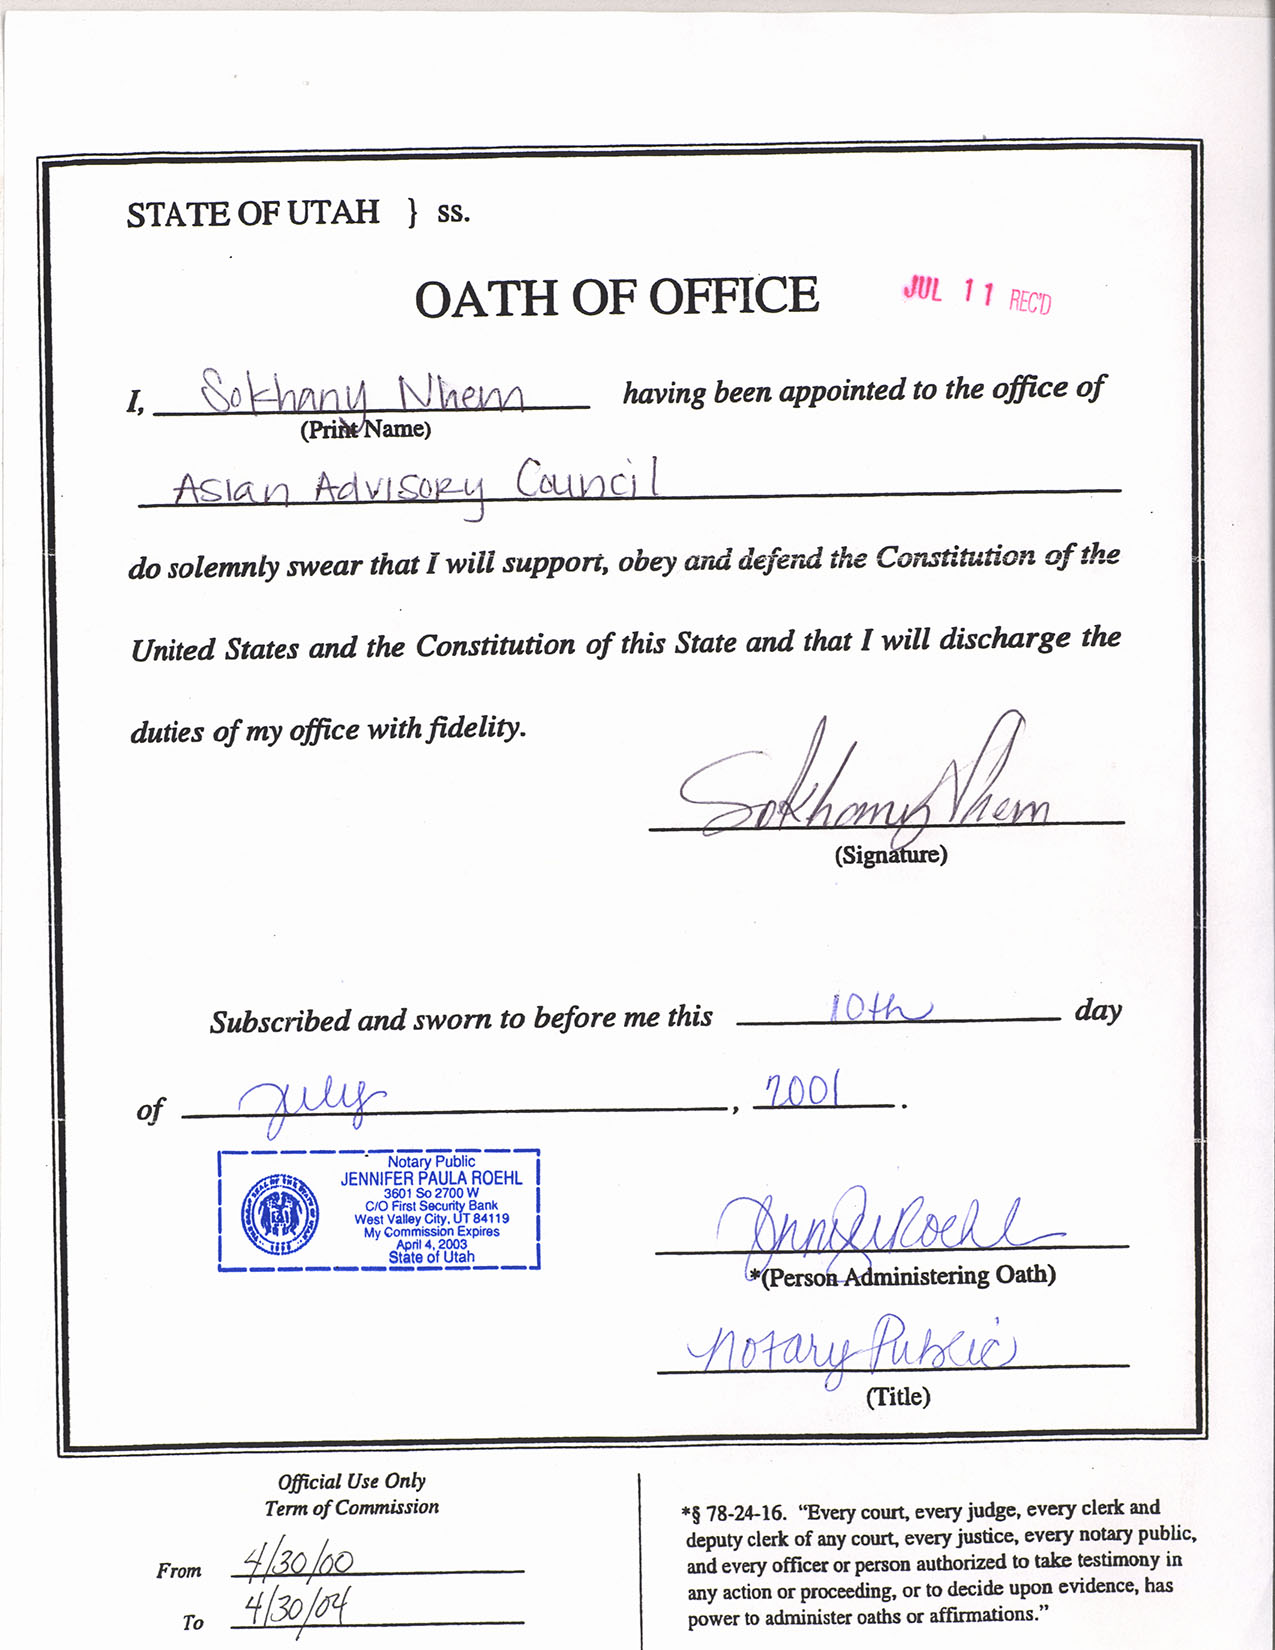 STATE OF UTAH } ss.
OATH OF OFFICE
JUL 11 REC'D
I, Sokhany Nhem having been appointed to the office of
(Print Name)
Asian Advisory Council
do solemnly swear that I will support, obey and defend the Constitution of the
United States and the Constitution of this State and that I will discharge the
duties of my office with fidelity.
Sokhany Nhem
(Signature)
Subscribed and sworn to before me this 10th day
of July, 2001.
Notary Public
JENNIFER PAULA ROEHL
3601 So 2700 W
C/O First Security Bank
West Valley City, UT 84119
My Commission Expires
April 4, 2003
State of Utah
Roehl
*(Person Administering Oath)
Notary Public
(Title)
Official Use Only
Term of Commission
From 4/30/00
To 4/30/04
*§ 78-24-16. “Every court, every judge, every clerk and
deputy clerk of any court, every justice, every notary public,
and every officer or person authorized to take testimony in
any action or proceeding, or to decide upon evidence, has
power to administer oaths or affirmations.”